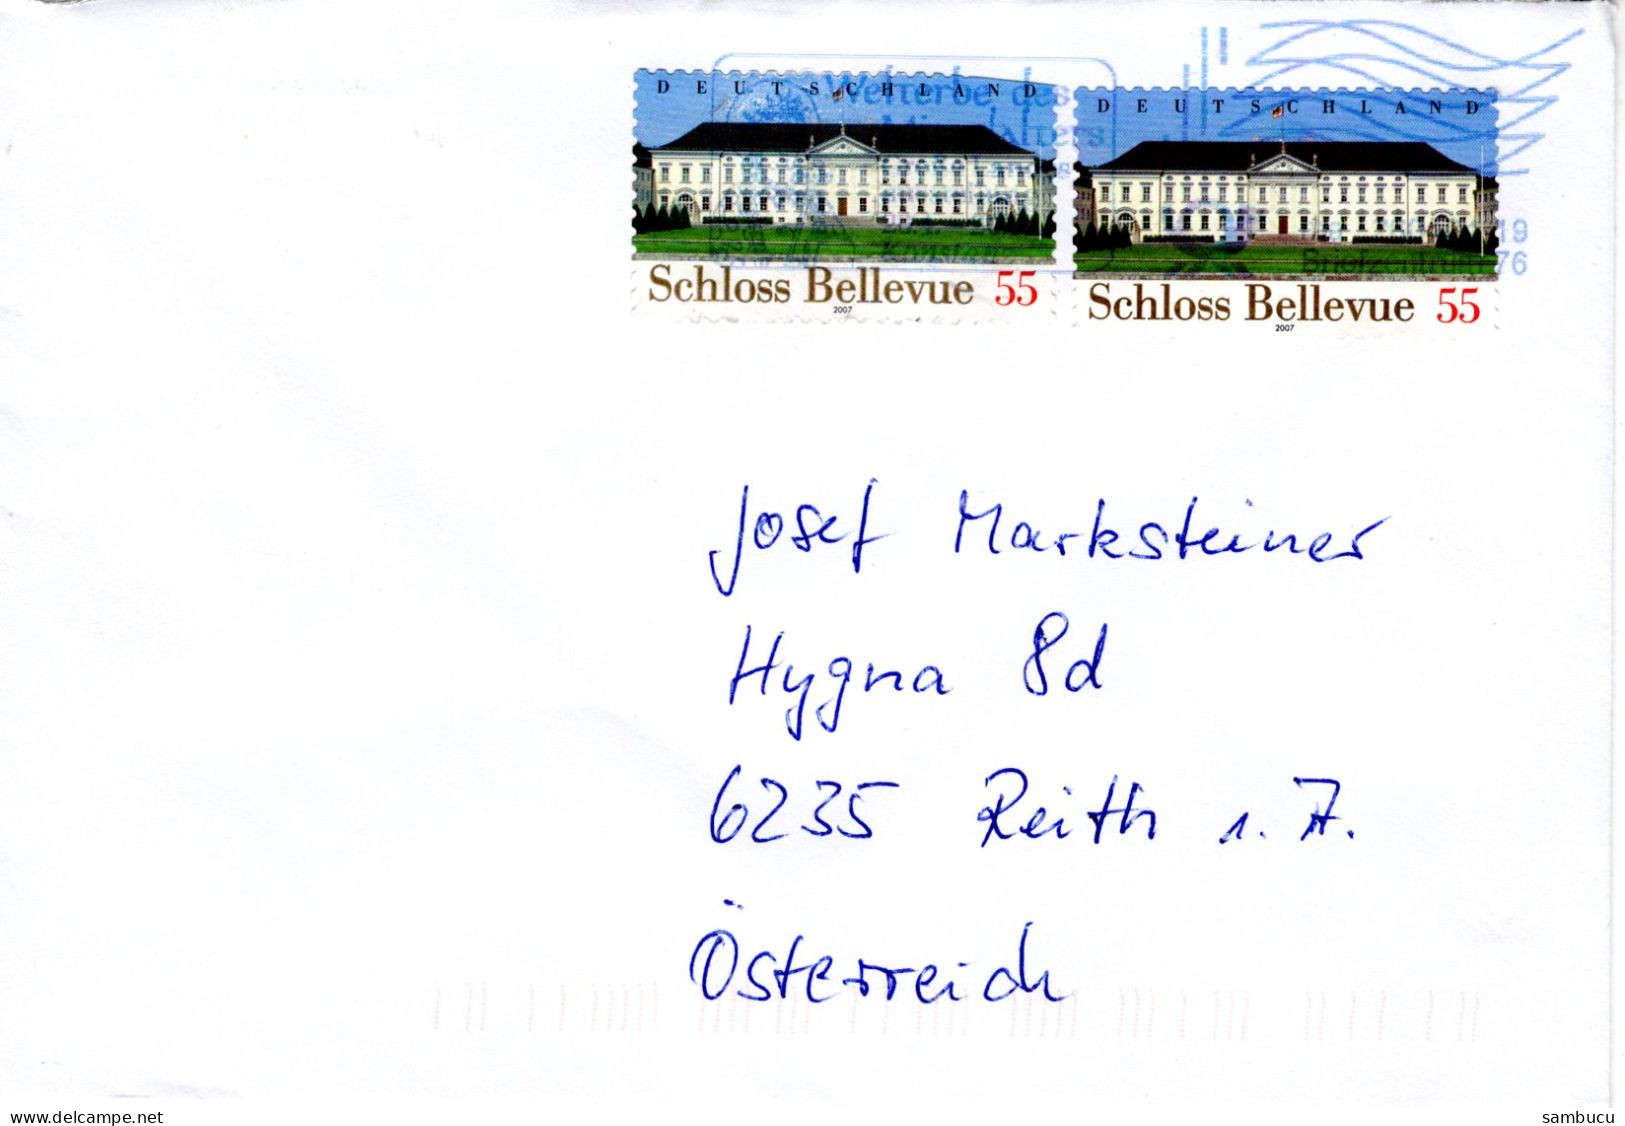 Welterbe des
DEUTSCHLAND
DEUTSCHLAND
19
Briefzentrum 76
Schloss Bellevue 55
2007
Schloss Bellevue 55
2007
Josef Marksteiner
Hygna 8d
6235 Reith i. A.
Österreich
www.delcampe.net
sambucu